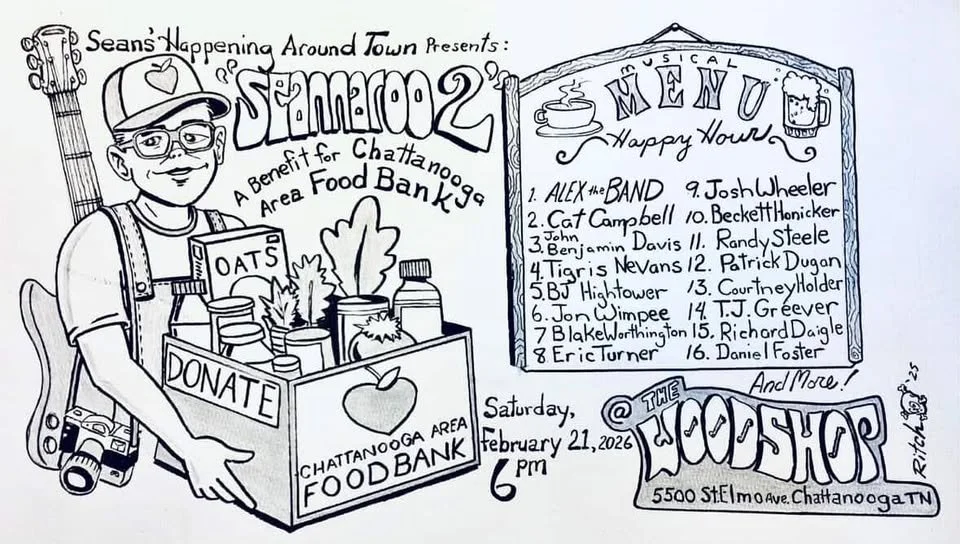 Seans' Happening Around Town Presents:
"Seannaroo 2"
A Benefit for Chattanooga
Area Food Bank
OATS
DONATE
CHATTANOOGA AREA
FOOD BANK
MUSICAL
MENU
Happy Hour
1. ALEX the BAND
2. Cat Campbell
3. John Benjamin Davis
4. Tigris Nevans
5. BJ Hightower
6. Jon Wimpee
7 Blake Worthington
8 Eric Turner
9. Josh Wheeler
10. Beckett Honicker
11. Randy Steele
12. Patrick Dugan
13. Courtney Holder
14. T.J. Greever
15. Richard Daigle
16. Daniel Foster
And More!
Saturday,
February 21, 2026
6 pm
@ THE
WOODSHOP
5500 St. Elmo Ave. Chattanooga TN
Ritch '25